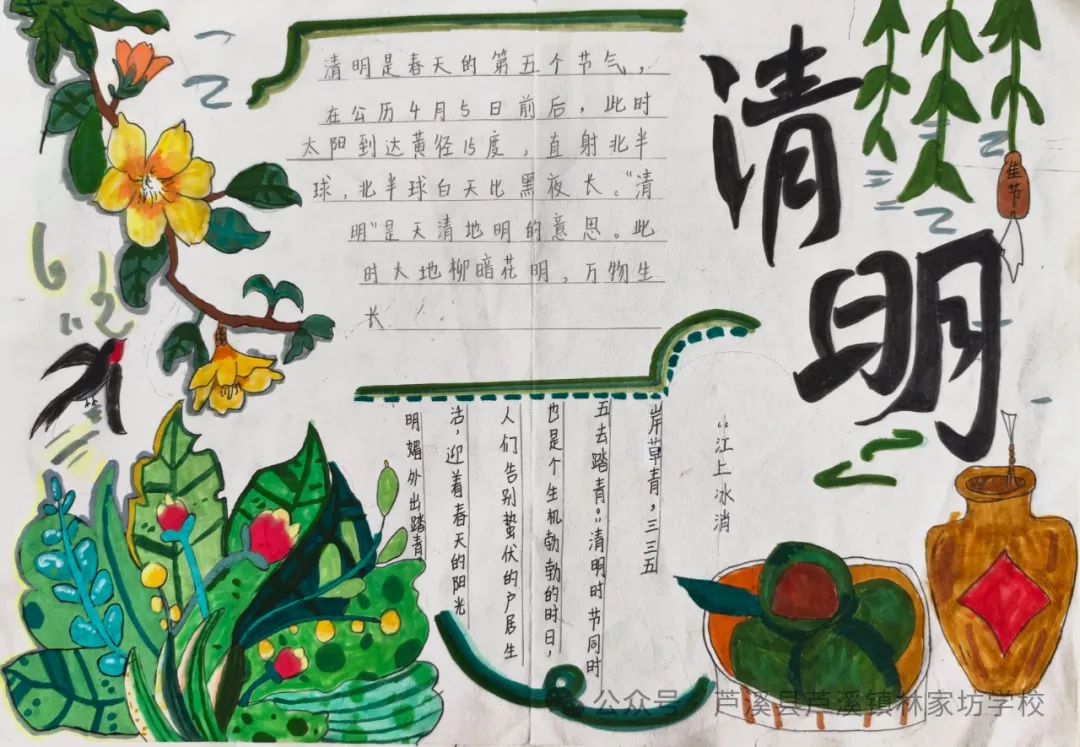 清明
佳节
清明是春天的第五个节气，
在公历4月5日前后，此时
太阳到达黄径15度，直射北半
球，北半球白天比黑夜长。“清
明”是天清地明的意思。此
时大地柳暗花明，万物生
长
“江上冰消
岸草青，三三五
五去踏青。”清明时节同时
也是个生机勃勃的时日，
人们告别蛰伏的户居生
活，迎着春天的阳光
明媚外出踏青
公众号·芦溪县芦溪镇林家坊学校